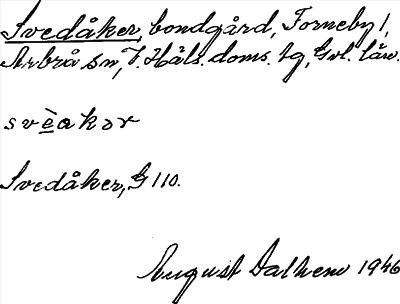 Svedåker, bondgård, Torneby 1,
Arbrå sn, V. Häls. doms. tg, Gvl. län.
svèakər
Svedåker, G 110.
August Dalhem 1946